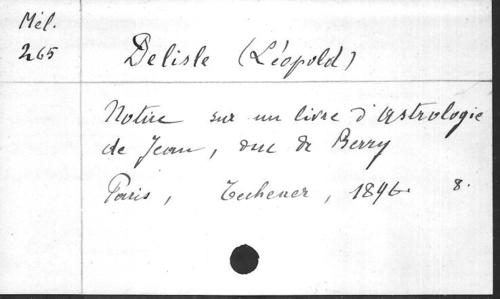 Mél.
265
Delisle (Léopold)
Notice sur un livre d'astrologie
de Jean, duc de Berry
Paris, Techener, 1896. 8.